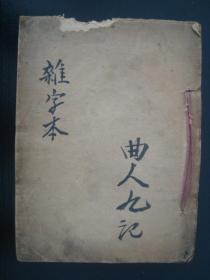 雜字本
曲人九记